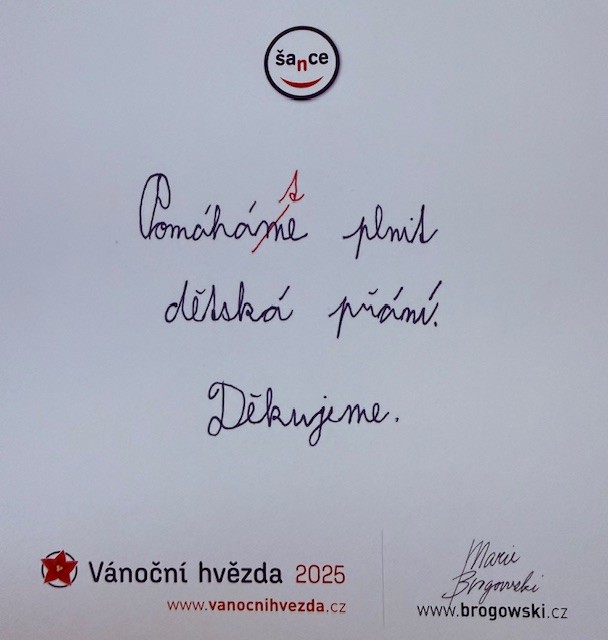 šance
Pomáháme plnit
s
dětská přání.
Děkujeme.
Vánoční hvězda 2025
www.vanocnihvezda.cz
Marie
Brogowski
www.brogowski.cz